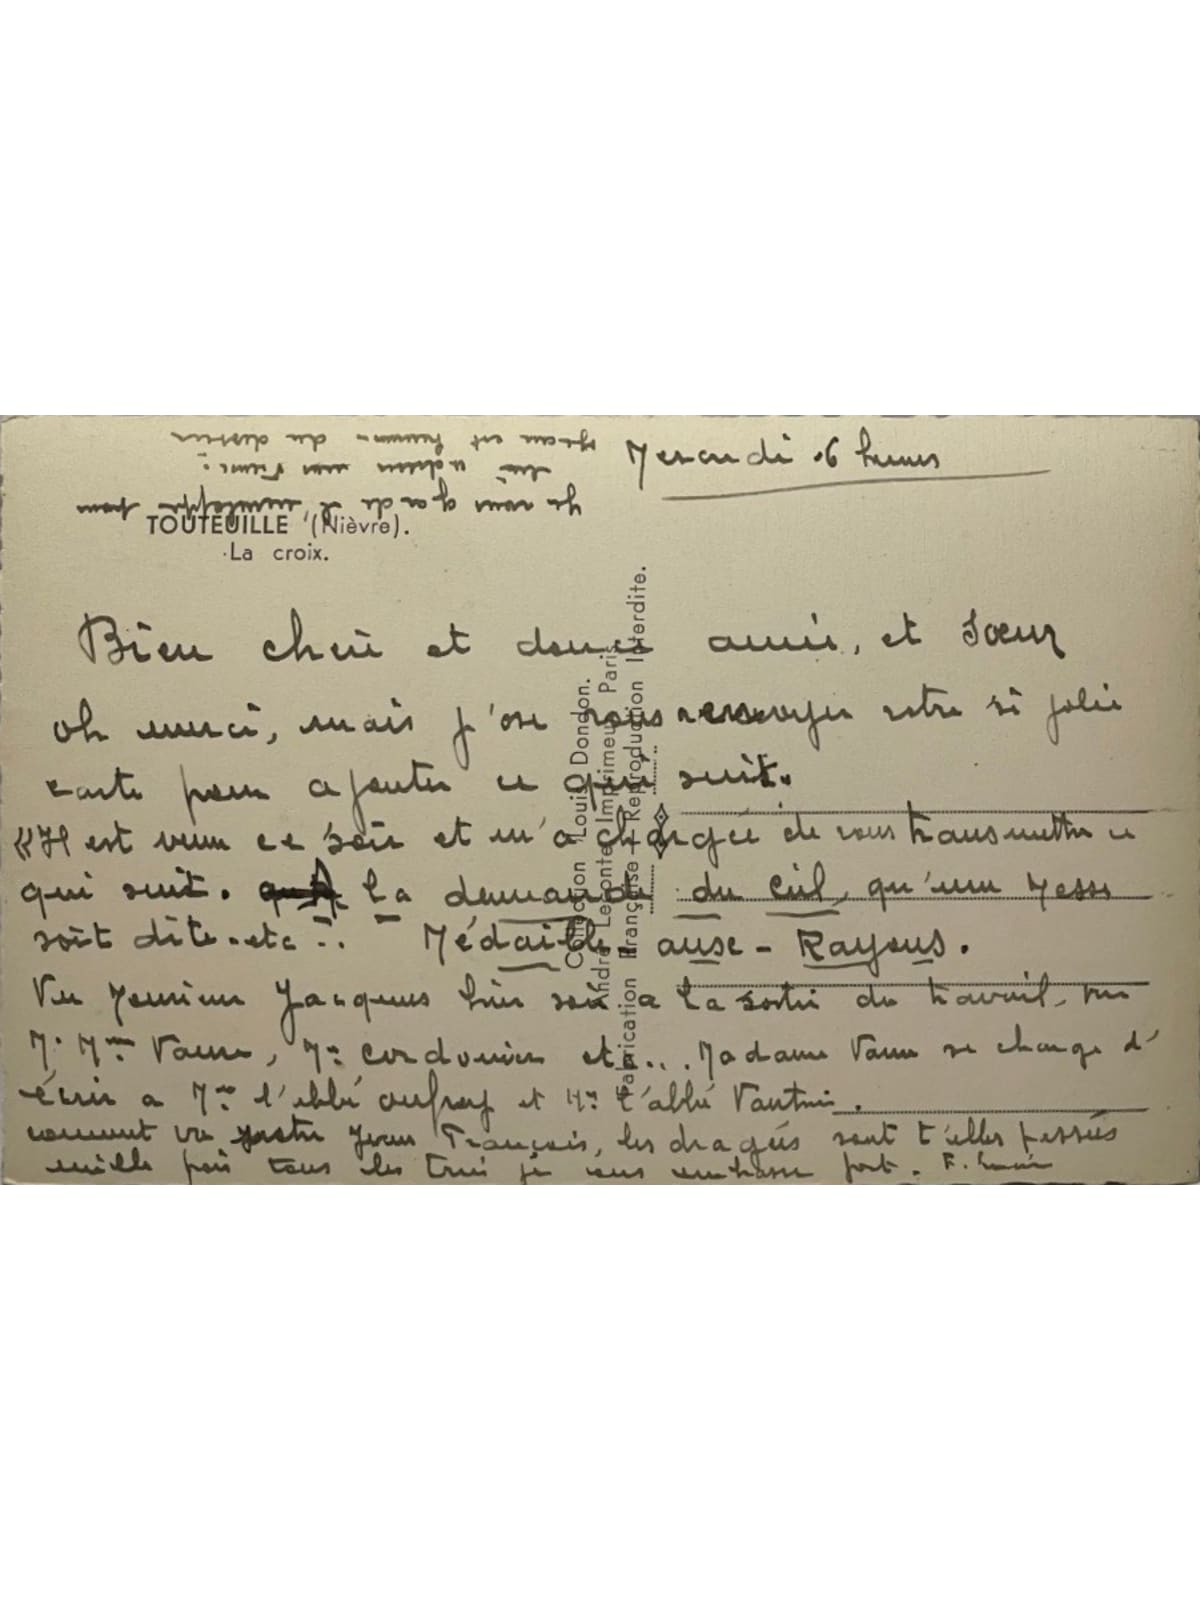 Mercredi 6 heures
je vous garde l'enveloppe pour
du dessin
TOUTEUILLE (Nièvre).
La croix.
Collection Louis Dondon.
André Leconte, Imprimeur, Paris
Fabrication Française - Reproduction Interdite.
Bien chère et douce amie, et Sœur
oh merci, mais j'ose vous renvoyer votre si jolie
carte pour ajouter ce qui suit.
« H est venu ce soir et m'a chargée de vous transmettre ce
qui suit. La demande du Ciel, qu'une Messe
soit dite. etc... Médaille aux Rayons.
Vu Monsieur Jacques hier soir a la sortie du travail, vu
M. Mme Vanne, Mr Cordonier etc... Madame Vanne se charge d'
écrire a Mr l'abbé et Mr l'abbé
comment va Jean François, les dragées sont t'elles passées
mille fois tous les trois je vous embrasse fort. F.